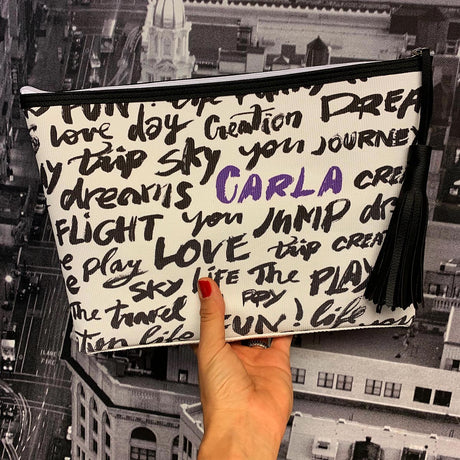 FUN! life
love day Creation DREA
trip sky you JOURNEY
dreams CARLA CRE
FLIGHT you JUMP dr
play LOVE trip CREAT
SKY LIFE The PLAY
The travel
life FUN! life